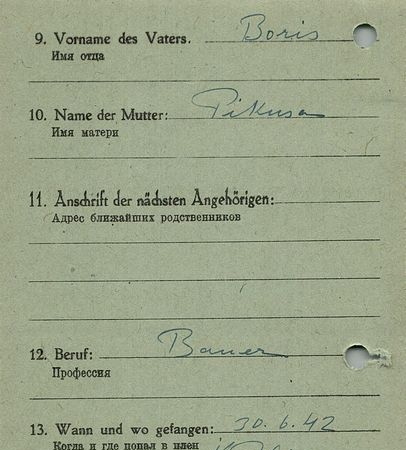 9. Vorname des Vaters. Boris
Имя отца
10. Name der Mutter: Pikusa
Имя матери
11. Anschrift der nächsten Angehörigen:
Адрес ближайших родственников
12. Beruf: Bauer
Профессия
13. Wann und wo gefangen: 30.6.42
Когда и где попал в плен